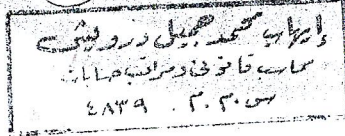 إيهاب محمد جميل درويش
محاسب قانوني ومراقب حسابات
س.م.م. ٤٨٣٩